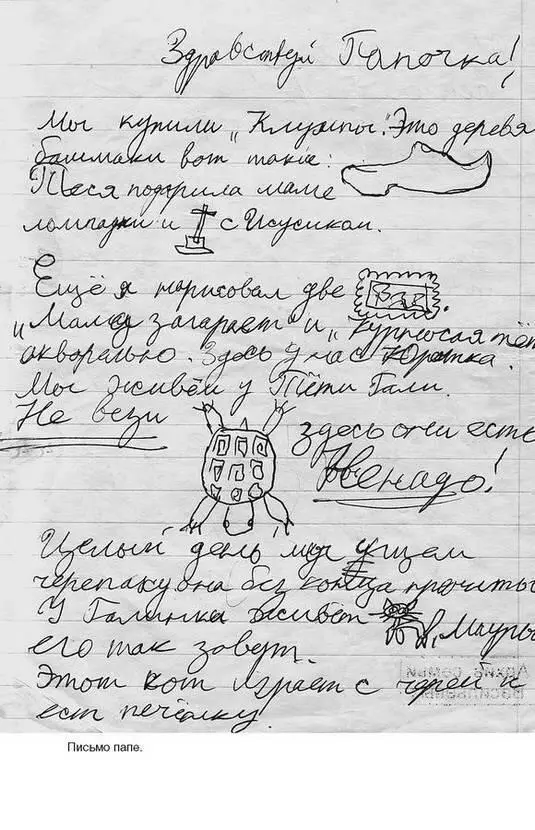 Здравствуй Папочка!
Мы купили „Клумпы". Это деревя
башмаки вот такие:
Леся подарила маме
лампадки и с Исусиком.
Ещё я нарисовал две
„Мама загарает" и „курносая тёт
акварелью. Здесь у нас
Мы живём у Тёти Гали.
Не вези здесь они есть
Не надо!
Целый день мы ищем
черепаху она без конца прячиты
У Галинки живет , Мауры
его так зовут.
Этот кот играет с череп и
ест печёнку.
Архив семьи
Васильевы
Письмо папе.